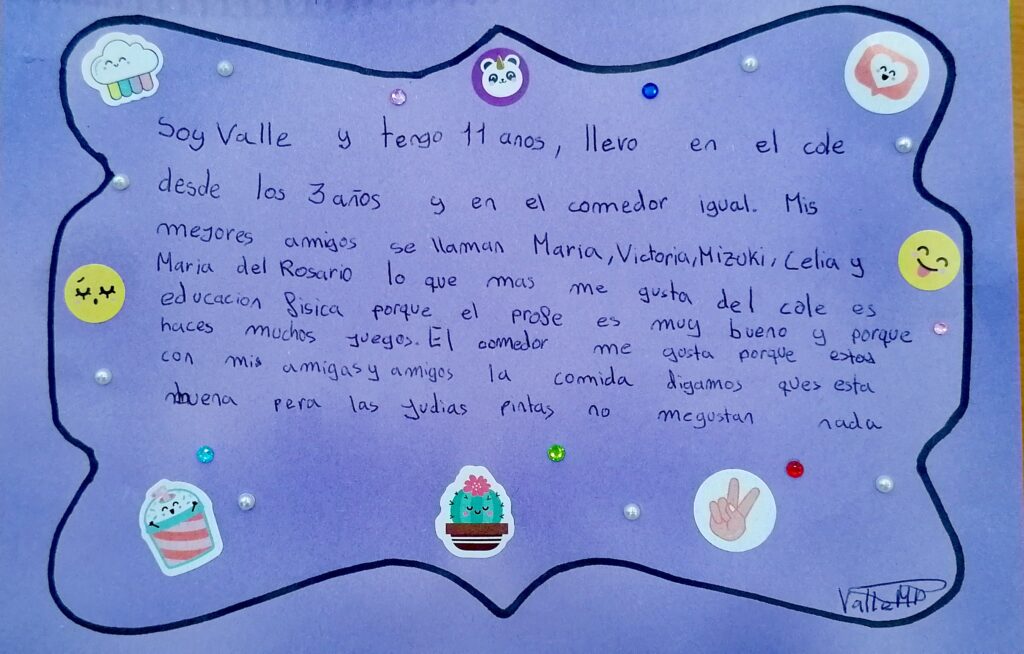 Soy Valle y tengo 11 anos, llevo en el cole
desde los 3 años y en el comedor igual. Mis
mejores amigos se llaman Maria, Victoria, Mizuki, Celia y
Maria del Rosario lo que mas me gusta del cole es
educacion fisica porque el profe es muy bueno y porque
haces muchos juegos. El comedor me gosta porque estas
con mis amigas y amigos la comida digamos ques esta
buena pera las judias pintas no megustan nada
Valle MP